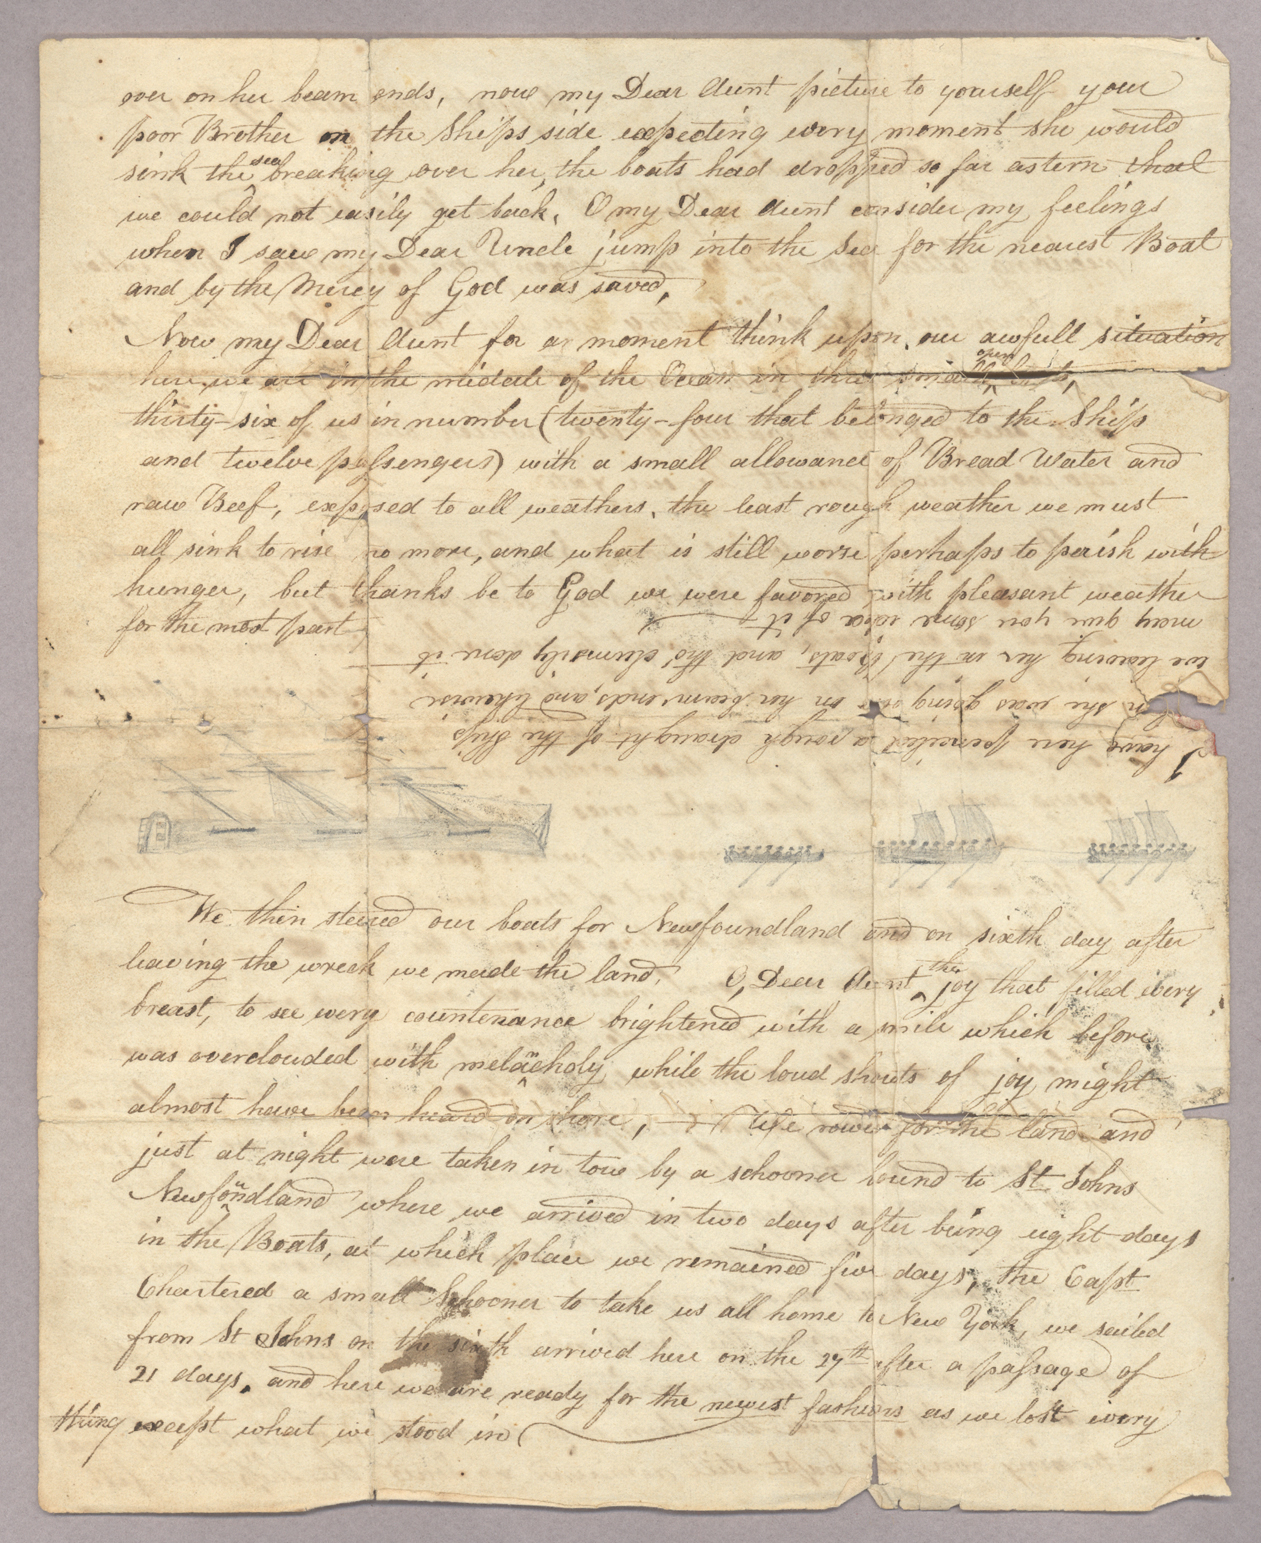 over on her beam ends, now my Dear Aunt picture to yourself your
poor Brother on the Ships side expecting every moment she would
sink the sea breaking over her, the boats had dropped so far astern that
we could not easily get back. O my Dear Aunt consider my feelings
when I saw my Dear Uncle jump into the Sea for the nearest Boat
and by the Mercy of God was saved,
Now my Dear Aunt for a moment think upon our awfull situation
here we are in the middle of the Ocean in three small open boats,
thirty-six of us in number (twenty-four that belonged to the Ship
and twelve passengers) with a small allowance of Bread Water and
raw Beef, exposed to all weathers, the least rough weather we must
all sink to rise no more, and what is still worse perhaps to perish with
hunger, but thanks be to God we were favored with pleasant weather
for the most part
I have here penciled a rough draught of the Ship
as she was going over on her beam ends, and likewise
we leaving her in the Boats, and tho' clumsily done it
may give you some idea of it
We then steered our boats for Newfoundland and on sixth day after
leaving the wreck we made the land. O, Dear Aunt the joy that filled every
breast, to see every countenance brightened with a smile which before
was overclouded with melancholy while the loud shouts of joy might
almost have been heard on shore, We rowed for the land and
just at night were taken in tow by a schooner bound to St Johns
Newfoundland where we arrived in two days after being eight days
in the Boats, at which place we remained five days, the Capt
Chartered a small Schooner to take us all home to New York, we sailed
from St Johns on the sixth arrived here on the 27th after a passage of
21 days, and here we are ready for the newest fashions as we lost every
thing except what we stood in